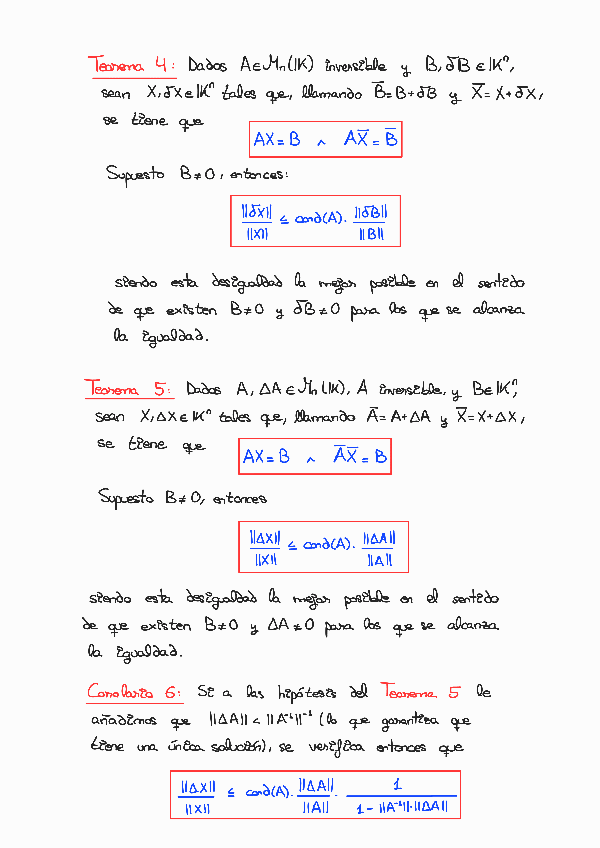 Teorema 4: Dados A∈Mn(IK) inversible y B, δB ∈ IKⁿ,
sean X, δX ∈ IKⁿ tales que, llamando B̅ = B+δB y X̅ = X+δX,
se tiene que
AX = B ∧ AX̅ = B̅
Supuesto B≠0, entonces:
||δX|| / ||X|| ≤ cond(A) · ||δB|| / ||B||
siendo esta desigualdad la mejor posible en el sentido
de que existen B≠0 y δB≠0 para los que se alcanza
la igualdad.
Teorema 5: Dados A, ΔA ∈ Mn(IK), A inversible, y B∈IKⁿ,
sean X, ΔX ∈ IKⁿ tales que, llamando A̅ = A+ΔA y X̅ = X+ΔX,
se tiene que
AX = B ∧ A̅X̅ = B
Supuesto B≠0, entonces
||ΔX|| / ||X̅|| ≤ cond(A) · ||ΔA|| / ||A||
siendo esta desigualdad la mejor posible en el sentido
de que existen B≠0 y ΔA≠0 para los que se alcanza
la igualdad.
Corolario 6: Si a las hipótesis del Teorema 5 le
añadimos que ||ΔA|| < ||A⁻¹||⁻¹ (lo que garantiza que
tiene una única solución), se verifica entonces que
||ΔX|| / ||X|| ≤ cond(A) · ||ΔA|| / ||A|| · 1 / 1 - ||A⁻¹||·||ΔA||